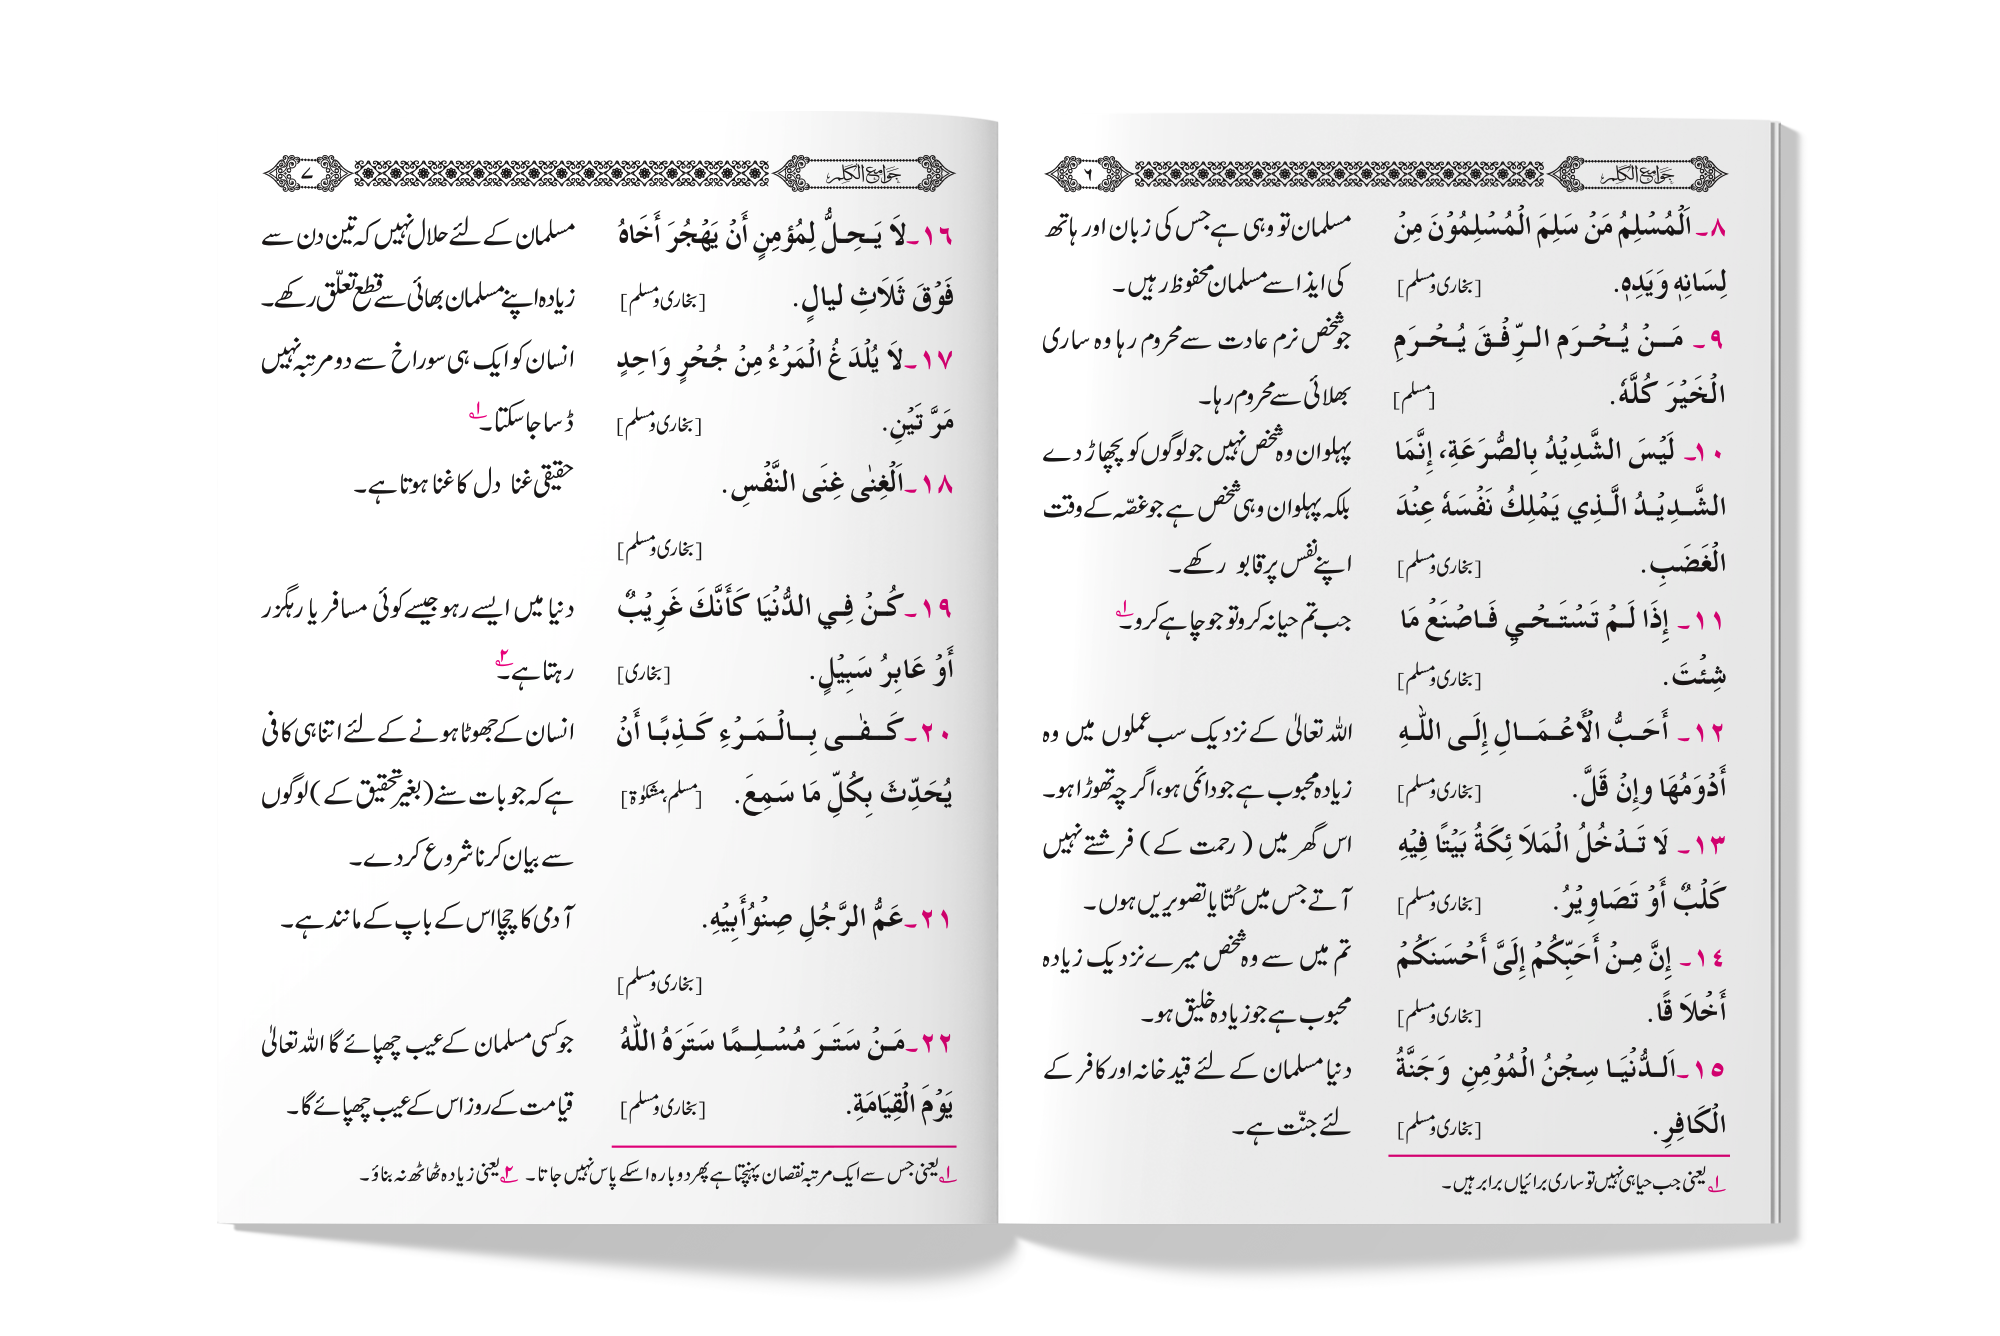 جوامع الکلم ٦
٨۔ اَلْمُسْلِمُ مَنْ سَلِمَ الْمُسْلِمُوْنَ مِنْ
لِسَانِهٖ وَيَدِهٖ. [بخاری ومسلم]
٩۔ مَـنْ يُـحْـرَم الـرِّفْـقَ يُـحْـرَمِ
الْخَيْرَ كُلَّهٗ. [مسلم]
١٠۔ لَيْسَ الشَّدِيْدُ بِالصُّرَعَةِ، إِنَّمَا
الشَّـدِيْـدُ الَّـذِي يَمْلِكُ نَفْسَهٗ عِنْدَ
الْغَضَبِ. [بخاری ومسلم]
١١۔ إِذَا لَـمْ تَسْتَـحْـيِ فَـاصْنَعْ مَا
شِئْتَ. [بخاری ومسلم]
١٢۔ أَحَـبُّ الْأَعْـمَــالِ إِلَـى اللّٰـهِ
أَدْوَمُهَا وإِنْ قَلَّ. [بخاری ومسلم]
١٣۔ لَا تَـدْخُلُ الْمَلَا ئِكَةُ بَيْتًا فِيْهِ
كَلْبٌ أَوْ تَصَاوِيْرُ. [بخاری ومسلم]
١٤۔ إِنَّ مِـنْ أَحَبِّكُمْ إِلَىَّ أَحْسَنَكُمْ
أَخْلَا قًا. [بخاری ومسلم]
١٥۔اَلـدُّنْيَـا سِجْنُ الْمُوْمِنِ وَجَنَّةُ
الْكَافِرِ. [بخاری ومسلم]
مسلمان تو وہی ہے جس کی زبان اور ہاتھ
کی ایذا سے مسلمان محفوظ رہیں۔
جو شخص نرم عادت سے محروم رہا وہ ساری
بھلائی سے محروم رہا۔
پہلوان وہ شخص نہیں جو لوگوں کو پچھاڑ دے
بلکہ پہلوان وہی شخص ہے جو غصّہ کے وقت
اپنے نفس پر قابو رکھے۔
جب تم حیا نہ کرو تو جو چاہے کرو۔۱
اللہ تعالیٰ کے نزدیک سب عملوں میں وہ
زیادہ محبوب ہے جو دائمی ہو، اگرچہ تھوڑا ہو۔
اس گھر میں (رحمت کے) فرشتے نہیں
آتے جس میں کُتّا یا تصویریں ہوں۔
تم میں سے وہ شخص میرے نزدیک زیادہ
محبوب ہے جو زیادہ خلیق ہو۔
دنیا مسلمان کے لئے قید خانہ اور کافر کے
لئے جنّت ہے۔
۱ یعنی جب حیا ہی نہیں تو ساری برائیاں برابر ہیں۔
جوامع الکلم ٧
١٦۔لَا يَـحِـلُّ لِمُؤمِنٍ أَنْ يَهْجُرَ أَخَاهُ
فَوْقَ ثَلَاثِ ليالٍ. [بخاری ومسلم]
١٧۔لَا يُلْدَ غُ الْمَرْءُ مِنْ جُحْرٍ وَاحِدٍ
مَرَّ تَيْنِ. [بخاری ومسلم]
١٨۔اَلْغِنٰى غِنَى النَّفْسِ.
[بخاری ومسلم]
١٩۔كُـنْ فِـي الدُّنْيَا كَأَنَّكَ غَرِيْبٌ
أَوْ عَابِرُ سَبِيْلٍ. [بخاری]
٢٠۔كَــفٰــى بِــالْـمَـرْءِ كَـذِبًـا أَنْ
يُحَدِّثَ بِكُلِّ مَا سَمِعَ. [مسلم، مشکوٰۃ]
٢١۔عَمُّ الرَّجُلِ صِنْوُأَبِيْهِ.
[بخاری ومسلم]
٢٢۔مَـنْ سَتَـرَ مُسْـلِـمًا سَتَرَهُ اللّٰهُ
يَوْمَ الْقِيَامَةِ. [بخاری ومسلم]
مسلمان کے لئے حلال نہیں کہ تین دن سے
زیادہ اپنے مسلمان بھائی سے قطع تعلّق رکھے۔
انسان کو ایک ہی سوراخ سے دو مرتبہ نہیں
ڈسا جا سکتا۔۱
حقیقی غنا دل کا غنا ہوتا ہے۔
دنیا میں ایسے رہو جیسے کوئی مسافر یا رہگزر
رہتا ہے۔۲
انسان کے جھوٹا ہونے کے لئے اتنا ہی کافی
ہے کہ جو بات سنے (بغیر تحقیق کے) لوگوں
سے بیان کرنا شروع کر دے۔
آدمی کا چچا اس کے باپ کے مانند ہے۔
جو کسی مسلمان کے عیب چھپائے گا اللہ تعالیٰ
قیامت کے روز اس کے عیب چھپائے گا۔
۱ یعنی جس سے ایک مرتبہ نقصان پہنچتا ہے پھر دوبارہ اسکے پاس نہیں جاتا۔ ۲ یعنی زیادہ ٹھاٹھ نہ بناؤ۔